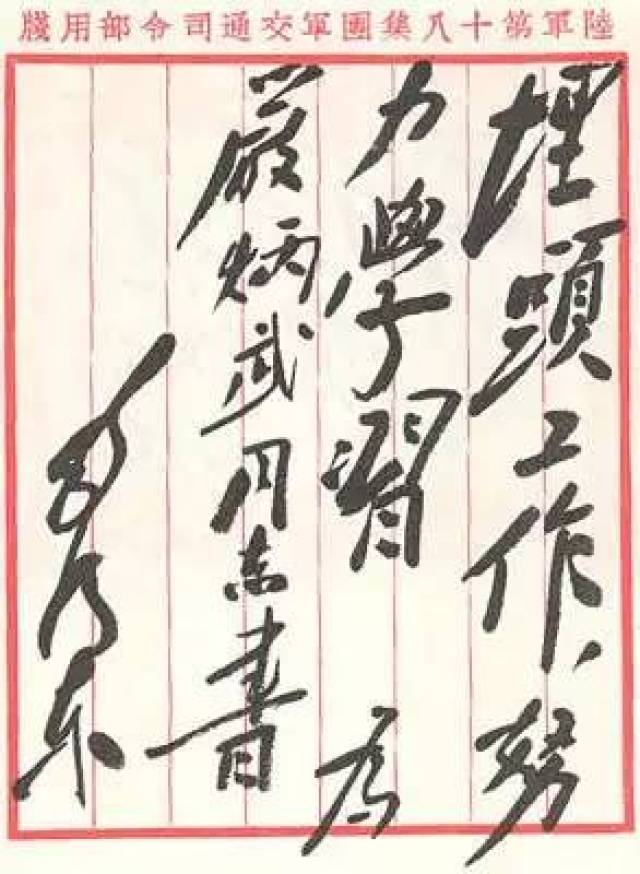 陸軍第十八集團軍交通司令部用牋
埋頭工作、努
力學習 為
嚴炳武同志書
毛澤東